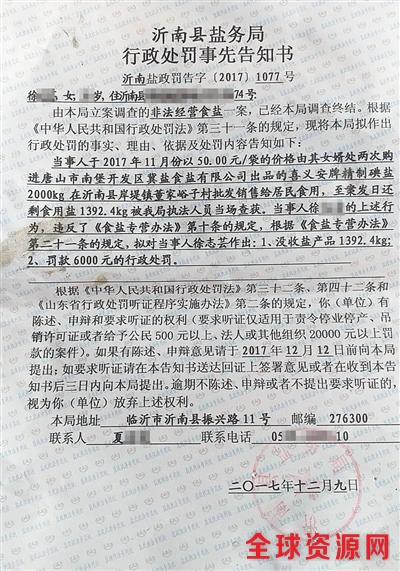 沂南县盐务局
行政处罚事先告知书
沂南盐政罚告字〔2017〕1077号
徐 女, 岁, 住沂南县 74号
由本局立案调查的非法经营食盐一案，已经本局调查终结。根据
《中华人民共和国行政处罚法》第三十一条的规定，现将本局拟作出
行政处罚的事实、理由、依据及处罚内容告知如下：
当事人于2017年11月份以50.00元/袋的价格由其女婿处两次购
进唐山市南堡开发区冀盐食盐有限公司出品的喜又安牌精制碘盐
2000kg在沂南县岸堤镇董家峪子村批发销售给居民食用，至案发日还
剩食用盐1392.4kg被我局执法人员当场查获。当事人徐 的上述行
为，违反了《食盐专营办法》第十条的规定，根据《食盐专营办法》
第二十一条的规定，拟对当事人徐志芸作出：1、没收盐产品1392.4kg；
2、罚款6000元的行政处罚。
根据《中华人民共和国行政处罚法》第三十二条、第四十二条和
《山东省行政处罚听证程序实施办法》第二条的规定，你（单位）有
陈述、申辩和要求听证的权利（要求听证仅适用于责令停业停产、吊
销许可证或者给予公民500元以上、法人或其他组织20000元以上罚
款的案件）。如果有陈述、申辩意见请于2017年12月12日前向本局
提出；如要求听证请在本告知书送达回证上签署意见或者在收到本告
知书后三日内向本局提出。逾期不陈述、申辩或者不提出要求听证的，
视为你（单位）放弃上述权利。
本局地址 临沂市沂南县振兴路11号 邮编 276300
联系人 夏 联系电话 05 10
二〇一七年十二月九日
全球资源网